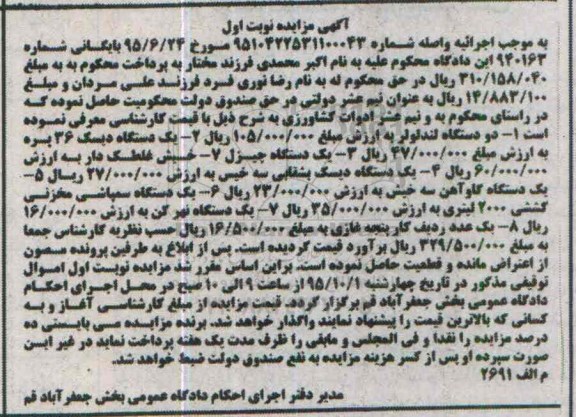 آگهی مزایده نوبت اول
به موجب اجرائیه واصله شماره ۹۵۱۰۴۲۲۵۳۱۱۰۰۰۴۳ مورخ ۹۵/۶/۲۴ بایگانی شماره
۹۴۰۱۶۳ این دادگاه محکوم علیه به نام اکبر محمدی فرزند مختار به پرداخت محکوم به به مبلغ
۳۱۰/۱۵۸/۰۴۰ ریال در حق محکوم له به نام رضا نوری فرد فرزند علی مردان و مبلغ
۱۴/۸۸۳/۱۰۰ ریال به عنوان نیم عشر دولتی در حق صندوق دولت محکومیت حاصل نموده که
در راستای محکوم به و نیم عشر ادوات کشاورزی به شرح ذیل با قیمت کارشناسی معرفی نموده
است ۱- دو دستگاه لندلولر به ارزش مبلغ ۱۰۵/۰۰۰/۰۰۰ ریال ۲- یک دستگاه دیسک ۳۶ پره
به ارزش مبلغ ۴۷/۰۰۰/۰۰۰ ریال ۳- یک دستگاه چیزل ۷- خیش غلطک دار به ارزش
۶۰/۰۰۰/۰۰۰ ریال ۴- یک دستگاه دیسک بشقابی سه خیس به ارزش ۲۷/۰۰۰/۰۰۰ ریال ۵-
یک دستگاه گاوآهن سه خیش به ارزش ۲۳/۰۰۰/۰۰۰ ریال ۶- یک دستگاه سمپاشی مخزنی
کششی ۲۰۰۰ لیتری به ارزش ۳۵/۰۰۰/۰۰۰ ریال ۷- یک دستگاه نهر کن به ارزش ۱۶/۰۰۰/۰۰۰
ریال ۸- یک عدد ردیف کار پنجه غازی به مبلغ ۱۶/۵۰۰/۰۰۰ ریال حسب نظریه کارشناس جمعا
به مبلغ ۳۲۹/۵۰۰/۰۰۰ ریال برآورد قیمت گردیده است. پس از ابلاغ به طرفین پرونده مصون
از اعتراض مانده و قطعیت حاصل نموده است. براین اساس مقرر شد مزایده نوبت اول اموال
توقیفی مذکور در تاریخ چهارشنبه ۹۵/۱۰/۱ از ساعت ۹ الی ۱۰ صبح در محل اجرای احکام
دادگاه عمومی بخش جعفرآباد قم برگزار گردد. قیمت مزایده از مبلغ کارشناسی آغاز و به
کسانی که بالاترین قیمت را پیشنهاد نمایند واگذار خواهد شد. برنده مزایده می بایستی ده
درصد مزایده را نقدا و فی المجلس و مابقی را ظرف مدت یک هفته پرداخت نماید در غیر این
صورت سپرده او پس از کسر هزینه مزایده به نفع صندوق دولت ضبط خواهد شد.
م الف ۲۶۹۱
مدیر دفتر اجرای احکام دادگاه عمومی بخش جعفرآباد قم